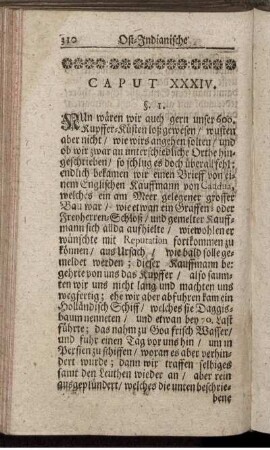 310 Ost-Indianische
CAPUT XXXIV.
§. 1.
NUn wären wir auch gern unser 600.
Kupffer-Kisten loß gewesen / wusten
aber nicht / wie wirs angehen solten / und
ob wir zwar an unterschiedlich Orthe hin-
geschrieben / so schlug es doch überall fehl:
endlich bekamen wir einen Brieff von ei-
nem Englischen Kauffmann von
welches ein am Meer gelegener grosser
Bau war / wie etwan ein Graffen- oder
Freyherren-Schloß / und gemelter Kauff-
mann sich allda auffhielte / wiewohlen er
wünschte mit Reputation fortkommen zu
können / aus Ursach / wie bald solle ge-
meldet werden : dieser Kauffmann be-
gehrte von uns das Kupffer / also saum-
ten wir uns nicht lang und machten uns
wegfertig; ehe wir aber abfuhren kam ein
Holländisch Schiff / welches sie Daggis-
baum nenneten / und etwan bey 90. Last
führte; das nahm zu Goa frisch Wasser /
und fuhr einen Tag vor uns hin / um in
Persien zu schiffen / woran es aber verhin-
dert wurde ; dann wir traffen selbiges
samt den Leuthen wieder an / aber rein
ausgeplündert / welches die unten beschrie-
bene